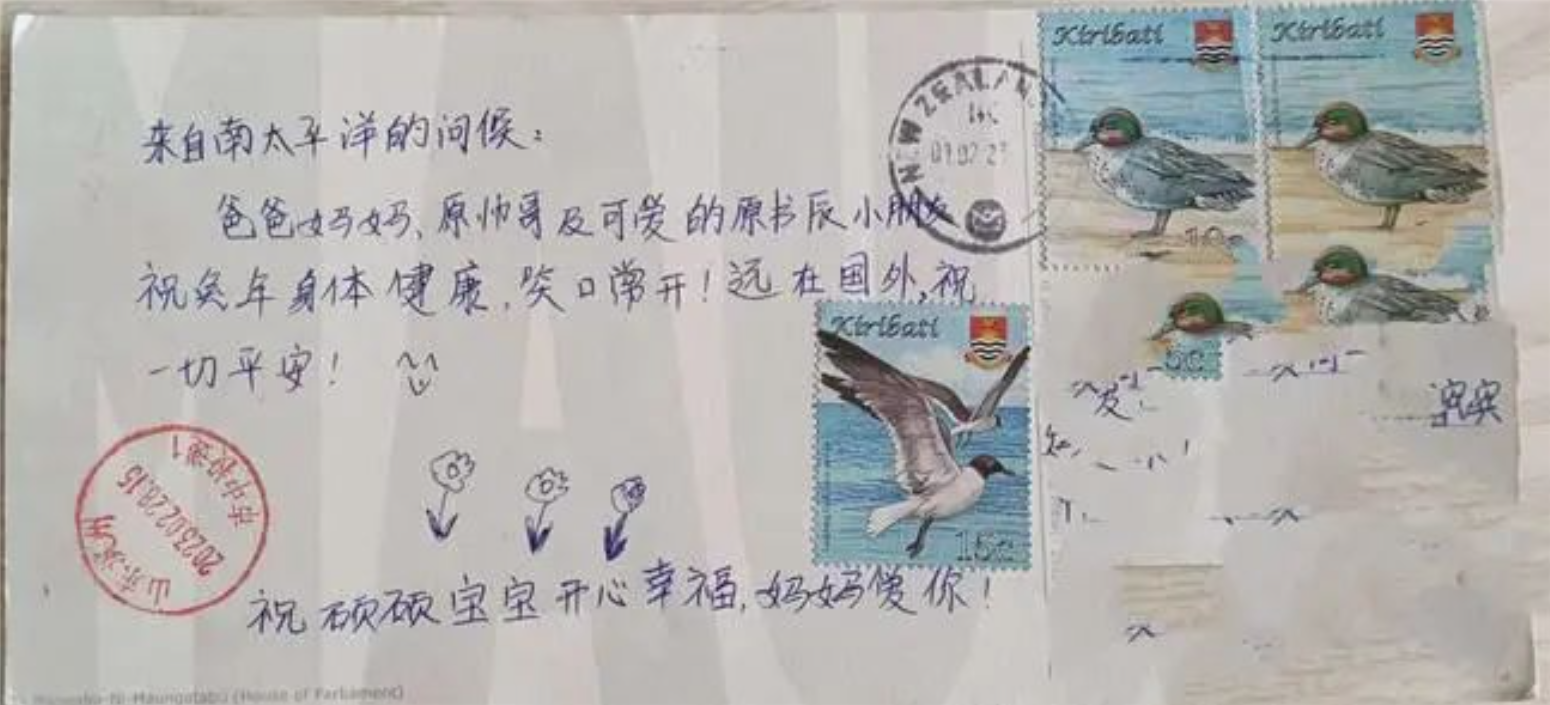 来自南太平洋的问候：
爸爸妈妈、原帅哥及可爱的原书辰小朋友
祝兔年身体健康，笑口常开！远在国外，祝
一切平安！
祝硕硕宝宝开心幸福，妈妈爱你！
Maungatabu (House of Parliament)
NEW ZEALAN
Kiribati
Kiribati
Kiribati
15c
5c
2023.02.28.15
山东滨州